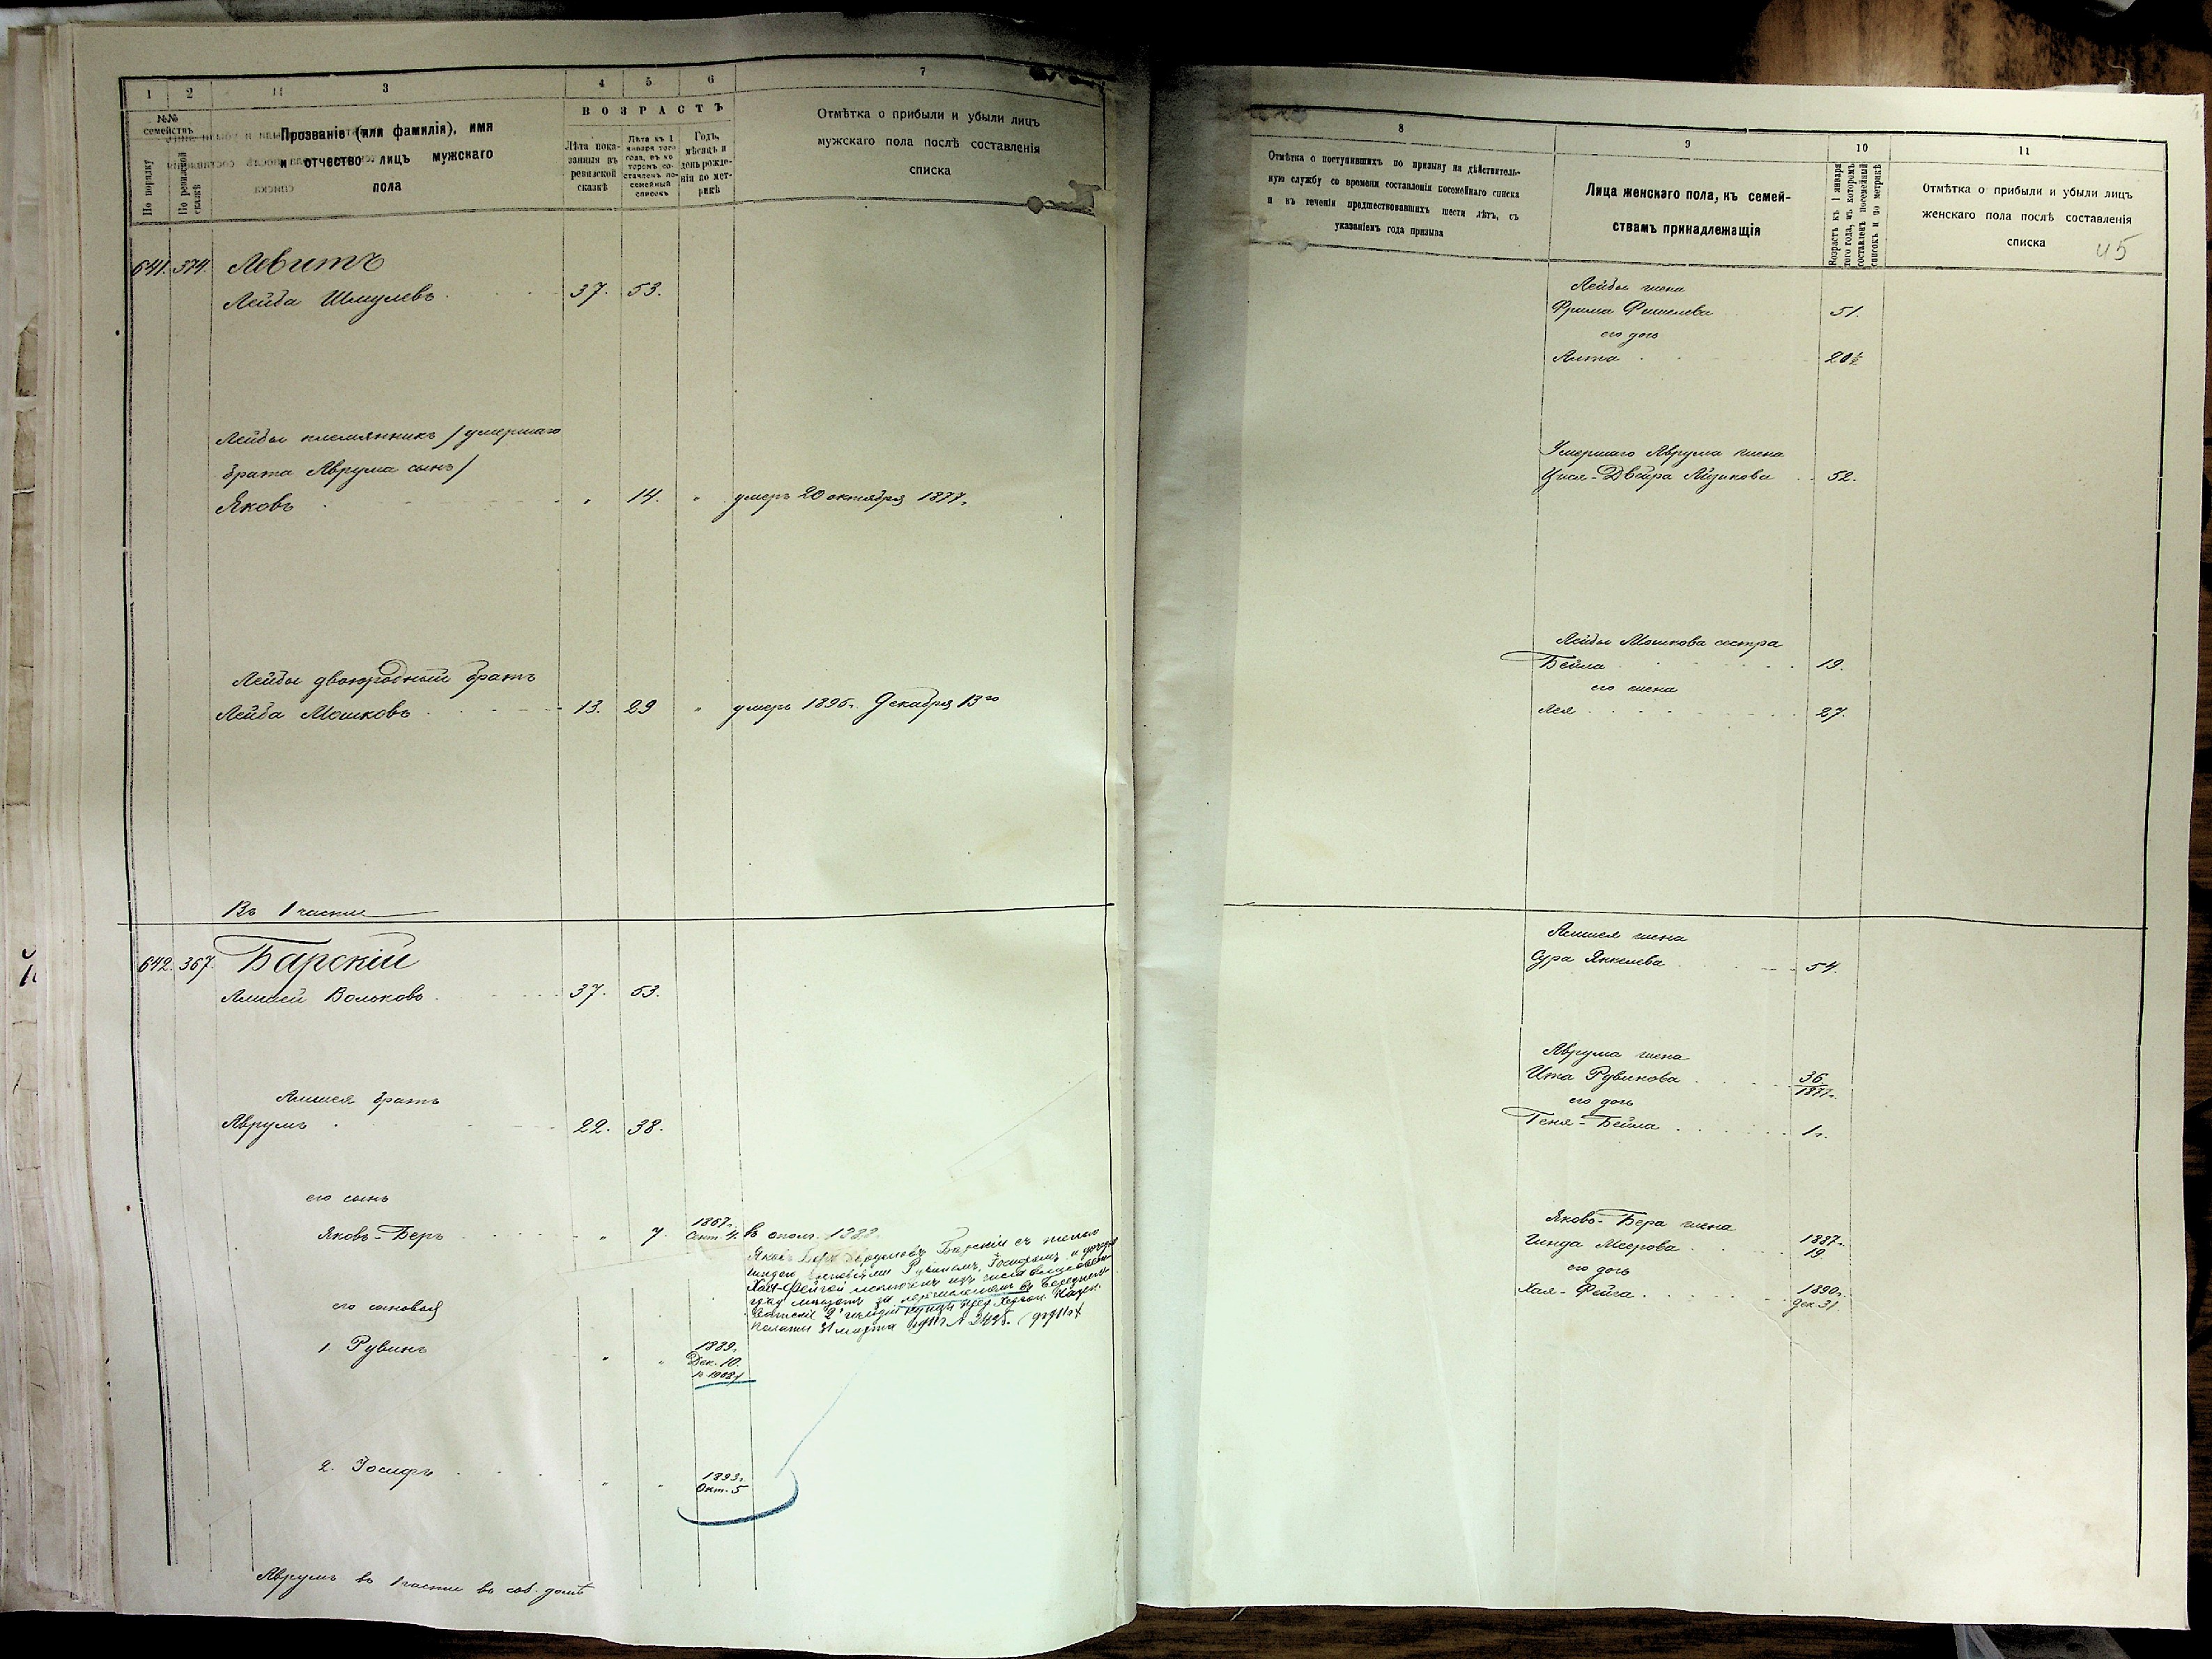 1 2 3 4 5 6 7
№№ семействъ
По порядку
По ревизской сказкѣ
Прозваніе (или фамилія), имя
и отчество лицъ мужскаго
пола
ВОЗРАСТЪ
Лѣта пока-
занныя въ
ревизской
сказкѣ
Лѣта къ 1
января того
года, въ ко-
торомъ со-
ставленъ по-
семейный
списокъ
Годъ,
мѣсяцъ и
день рожде-
нія по мет-
рикѣ
Отмѣтка о прибыли и убыли лицъ
мужскаго пола послѣ составленія
списка
641. 374. Левитъ
Лейба Шмулевъ 37. 53.
Лейбы племянникъ /умершаго
брата Аврума сынъ/
Яковъ " 14. " умеръ 20 октября 1877г.
Лейбы двоюродный братъ
Лейба Мошковъ 13. 29 " умеръ 1896г. Декабря 13го
Въ 1 части
642. 367. Барскій
Волковъ 37. 53.
братъ
Аврумъ 22. 38.
его сынъ
Яковъ-Беръ " 7. 1867г.
Сент. 4.
Барскій съ женою
Рувиномъ, Іосифомъ и
Палаты 31 марта
его сыновья
1. Рувинъ " " 1889г.
Дек. 10.
2. Іосифъ " " 1893г.
Окт. 5
Аврумъ въ 1 части въ соб. домѣ
8 9 10 11
Отмѣтка о поступившихъ по призыву на дѣйствитель-
ную службу со времени составленія посемейнаго списка
и въ теченіи предшествовавшихъ шести лѣтъ, съ
указаніемъ года призыва
Лица женскаго пола, къ семей-
ствамъ принадлежащія
Возрастъ къ 1 января
того года, въ которомъ
составленъ посемейный
списокъ и по метрикѣ
Отмѣтка о прибыли и убыли лицъ
женскаго пола послѣ составленія
списка
45
Лейбы жена
Фрима Фишелева 51.
его дочь
20½
Умершаго Аврума жена
Двейра Айзикова 52.
Лейбы Мошкова сестра
Бейла 19.
его жена
Лея 27.
жена
Сура Янкелева 54.
Аврума жена
Ита Рувинова 36
1877г.
его дочь
Геня-Бейла 1г.
Яковъ-Бера жена
Гинда Меерова 1887г.
19
его дочь
Хая-Фейга 1890г.
Дек. 31.